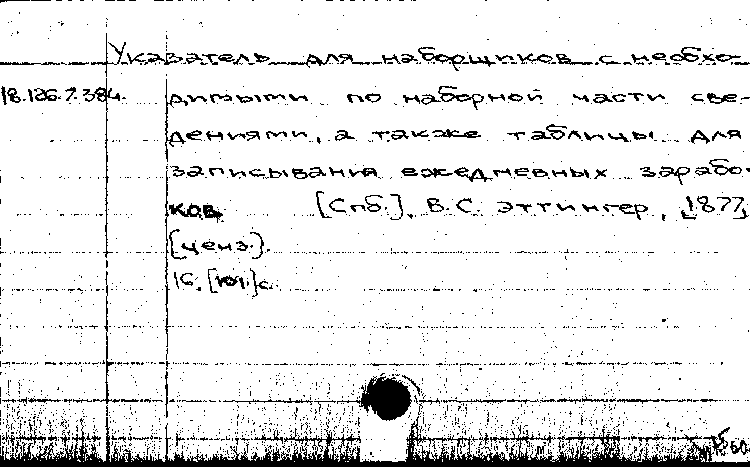 Указатель для наборщиков с необхо-
18.186.7.384. димыми по наборной части све-
дениями, а также таблицы для
записывания ежедневных заработ-
ков. [Спб.], В.С. Эттингер, [1877]
[ценз.].
16, [101] с.